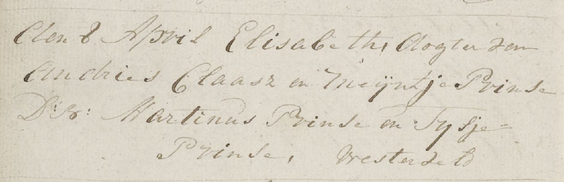 den 8 April Elisabeth, dogter van
Andries Claasz en Meijntje Prinse
D: g: Martinus Prinse en Tysje=
Prinse,